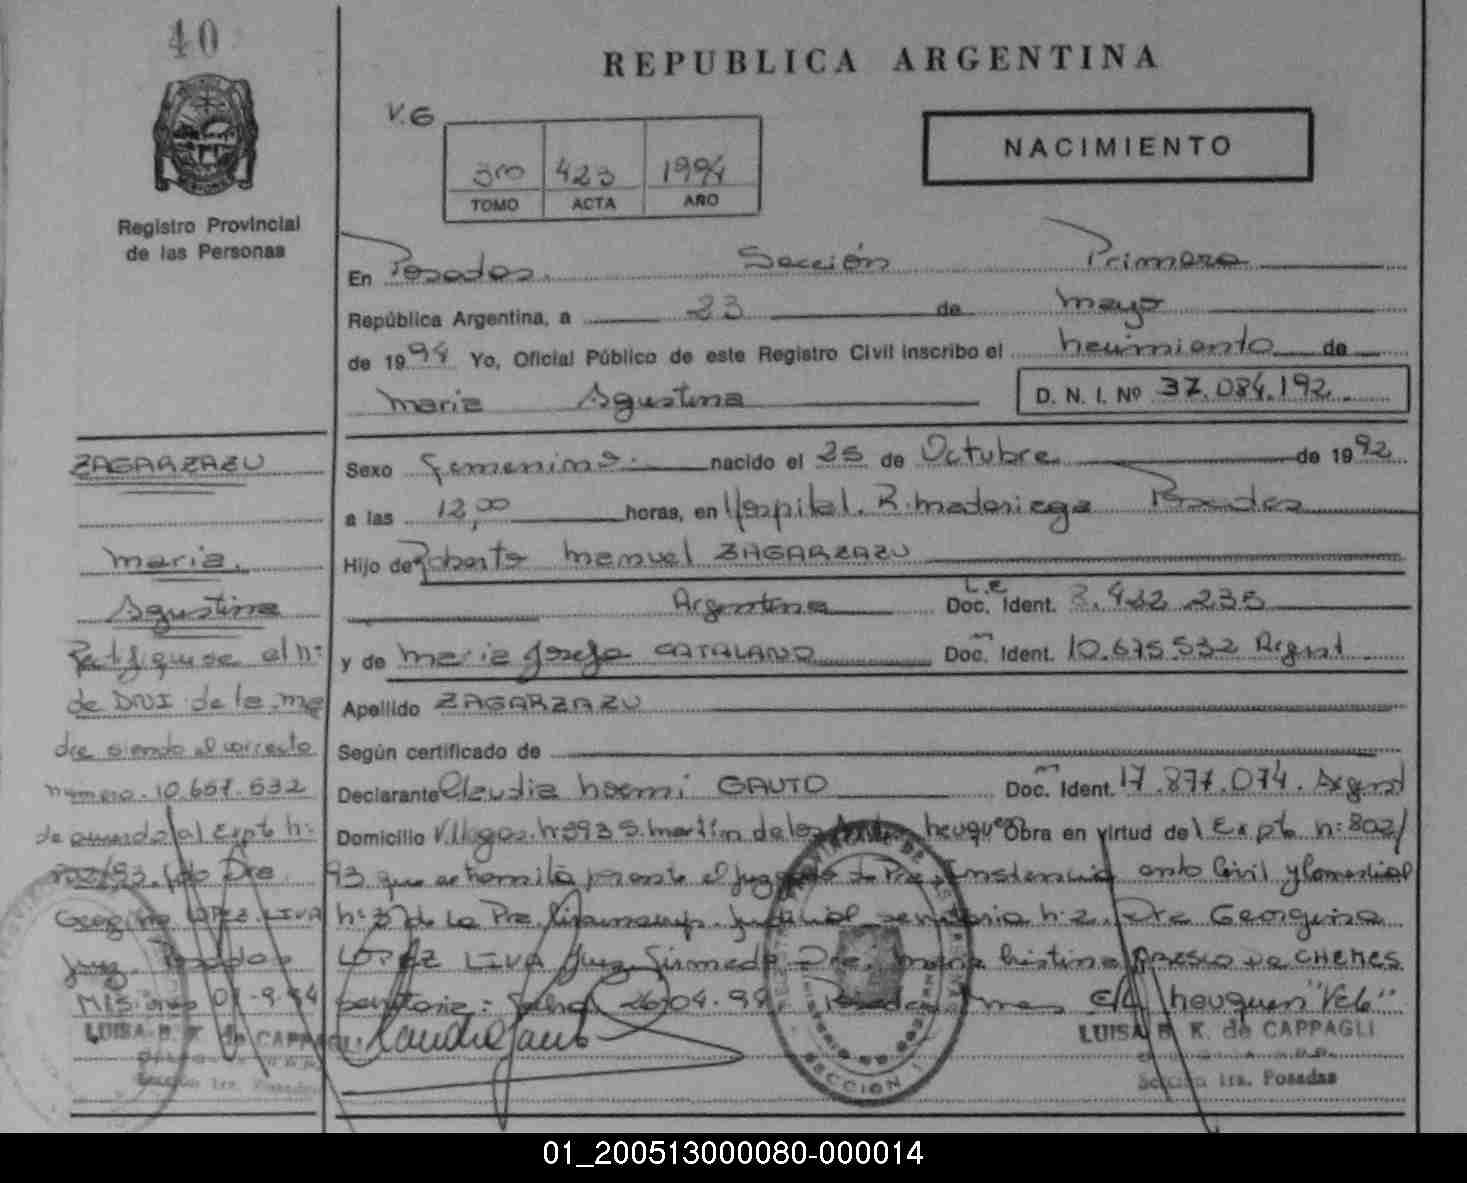 40
REPUBLICA ARGENTINA
V.G
NACIMIENTO
3ro 423 1994
TOMO ACTA AÑO
Registro Provincial
de las Personas
En Posadas. Sección Primera
República Argentina, a 23 de mayo
de 1994 Yo, Oficial Público de este Registro Civil inscribo el de
Maria Agustina D. N. I. Nº 37.084.192
ZAGARZAZU
Maria
Agustina
Rectifiquese el nº
de DNI de la ma
dre siendo el correcto
número 10.657.532
de acuerdo al Expte nº
802/93. Jdo Dra
Georgina LOPEZ LIVA
Juez. Posadas
Misiones 01-9-94
LUISA B. K. de CAPPAGLI
Sección 1ra. Posadas
Sexo Femenino. nacido el 25 de Octubre de 1992
a las 12,00 horas, en Hospital. R. Madariaga Posadas
Hijo de Roberto Manuel ZAGARZAZU
Argentina L.E Doc. Ident. 432 235
y de Maria Josefa CATALANO Doc. Ident. 10.675.532 Argent
Apellido ZAGARZAZU
Según certificado de
Declarante Claudia Noemi GAUTO Doc. Ident. 17.877.074. Argent
Domicilio nº 593 S. Martín de los Andes Neuquen Obra en virtud del Expte nº 802/
93 que se tramita por ante el Juzgado de Pra Instancia en lo Civil y Comercial
nº 3 de la Pra Judicial nº 2. Dra Georgina
LOPEZ LIVA Juez Firmado Dra. Maria Cristina DE CHEMES
Secretaria: 26.04.94 Posadas Mnes C/L Neuquen "Vale"
SECCION 1
LUISA B. K. de CAPPAGLI
Sección 1ra. Posadas
01_200513000080-000014